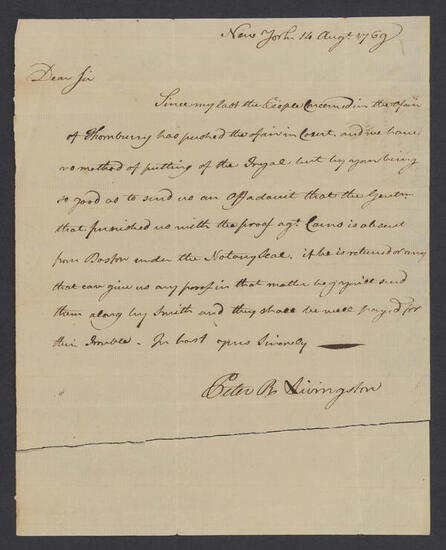 New York 14 Augt 1769
Dear Sir
Since my last the People Concerned in the afair
of Thornbury has pushed the afair in Court, and we have
no method of putting of the Tryal but by your being
so good as to send us an Affadavit that the Gentn
that furnished us with the proof agt. Cains is absent
from Boston under the Notary Seal. if he is returned or any
that can give us any proof in that matter beg you'll send
them along by Smith and they shall be well payed for
their Trouble. In hast yours Sincerely
Peter R Livingston